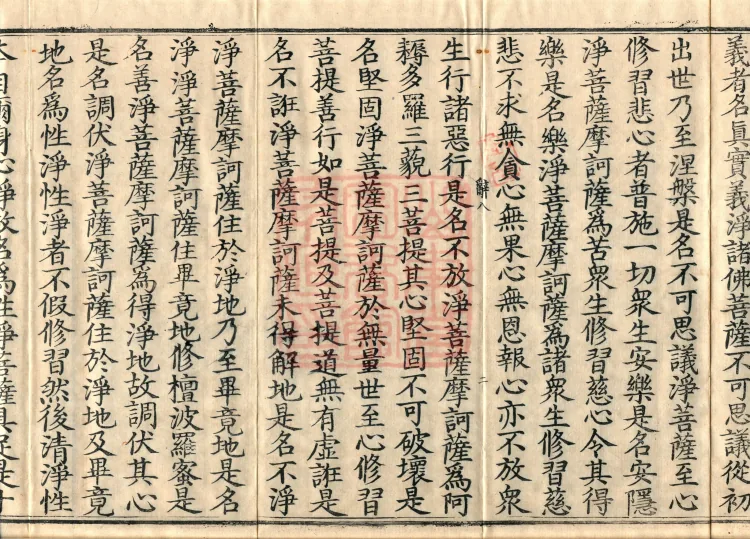 義者名真實義淨諸佛菩薩不可思議從初
出世乃至涅槃是名不可思議淨菩薩至心
修習悲心者普施一切衆生安樂是名安隱
淨菩薩摩訶薩爲苦衆生修習慈心令其得
樂是名樂淨菩薩摩訶薩爲諸衆生修習慈
悲不求無貪心無果心無恩報心亦不放衆
二
生行諸惡行是名不放淨菩薩摩訶薩爲阿
耨多羅三藐三菩提其心堅固不可破壞是
名堅固淨菩薩摩訶薩於無量世至心修習
菩提善行如是菩提及菩提道無有虛誑是
名不誑淨菩薩摩訶薩未得解地是名不淨
淨菩薩摩訶薩住於淨地乃至畢竟地是名
淨淨菩薩摩訶薩住畢竟地修檀波羅蜜是
名善淨菩薩摩訶薩爲得淨地故調伏其心
是名調伏淨菩薩摩訶薩住於淨地及畢竟
地名爲性淨性淨者不假修習然後清淨性
本自爾身心淨故名爲性淨菩薩具足是十